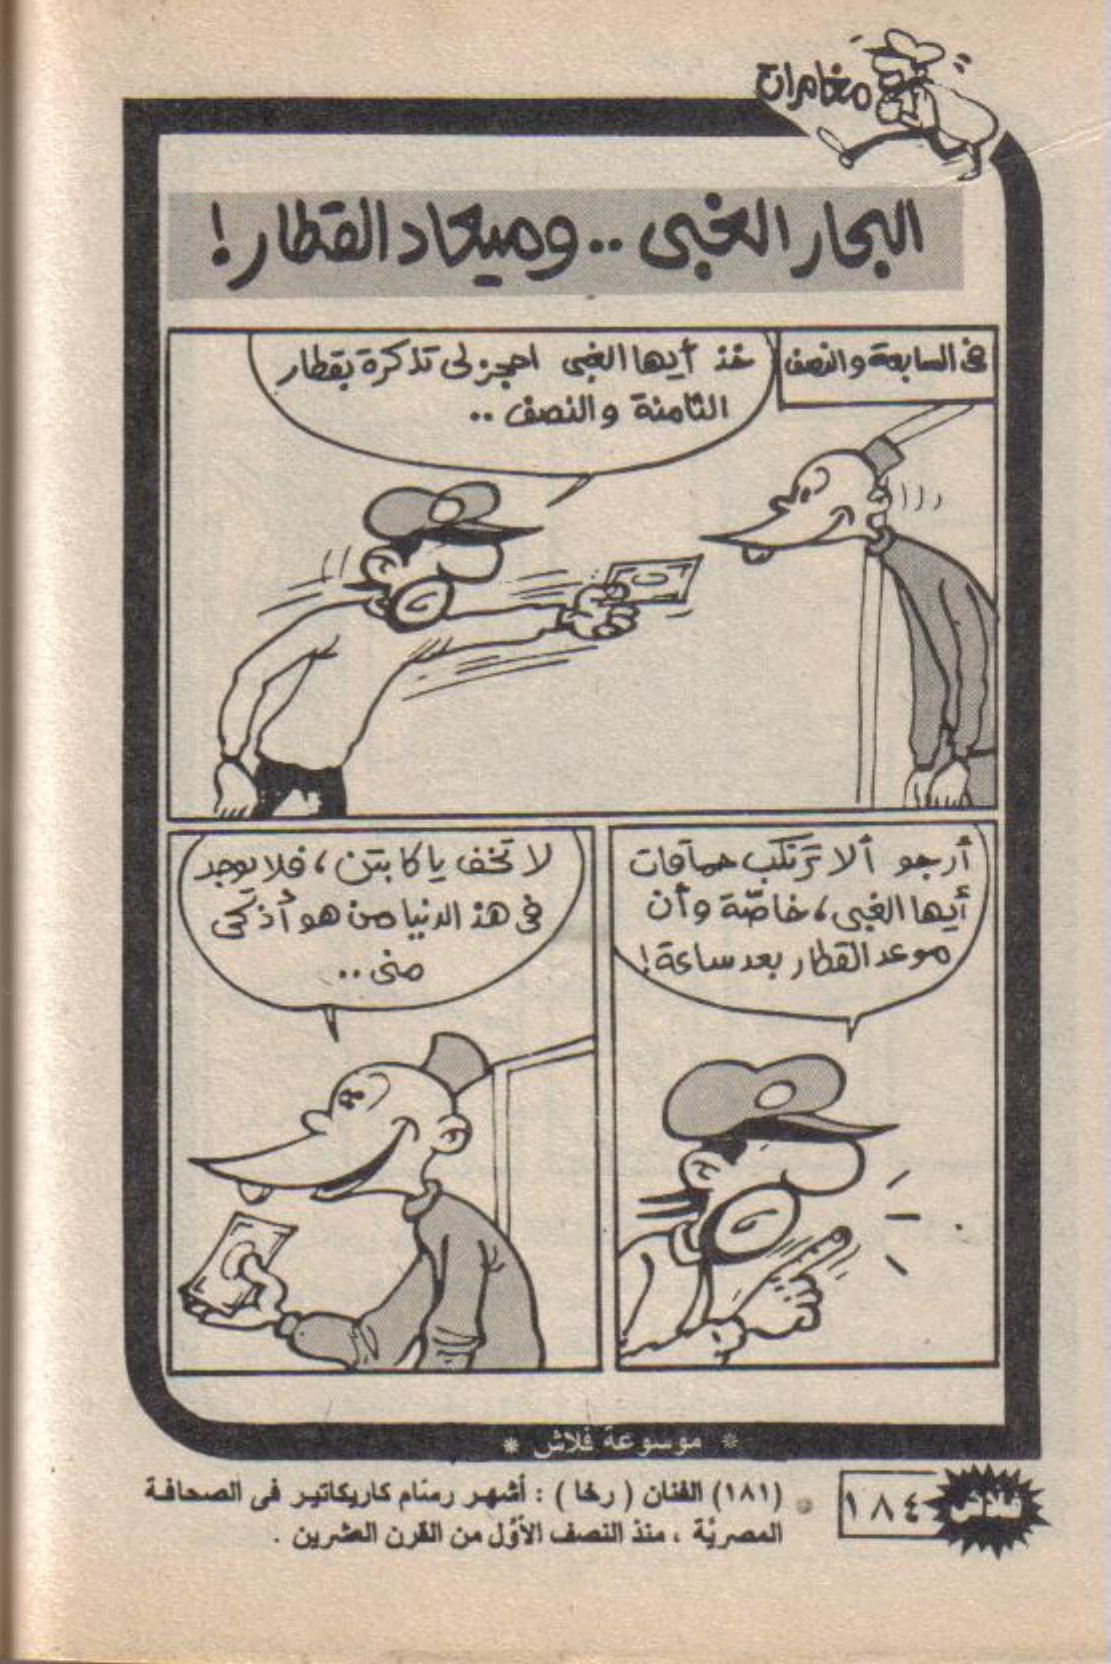 مغامرات
البحار الغبى .. وميعاد القطار !
فى السابعة والنصف
خذ أيها الغبى احجز لى تذكرة بقطار
الثامنة والنصف ..
أرجو ألا ترتكب حماقات
أيها الغبى ، خاصّة وأن
موعد القطار بعد ساعة !
لا تخف يا كابتن ، فلا يوجد
فى هذ الدنيا من هو أذكى
منى ..
* موسوعة فلاش *
(١٨١) الفنان ( رخا ) : أشهر رسّام كاريكاتير فى الصحافة
المصريّة ، منذ النصف الأوّل من القرن العشرين .
١٨٤
فلاش